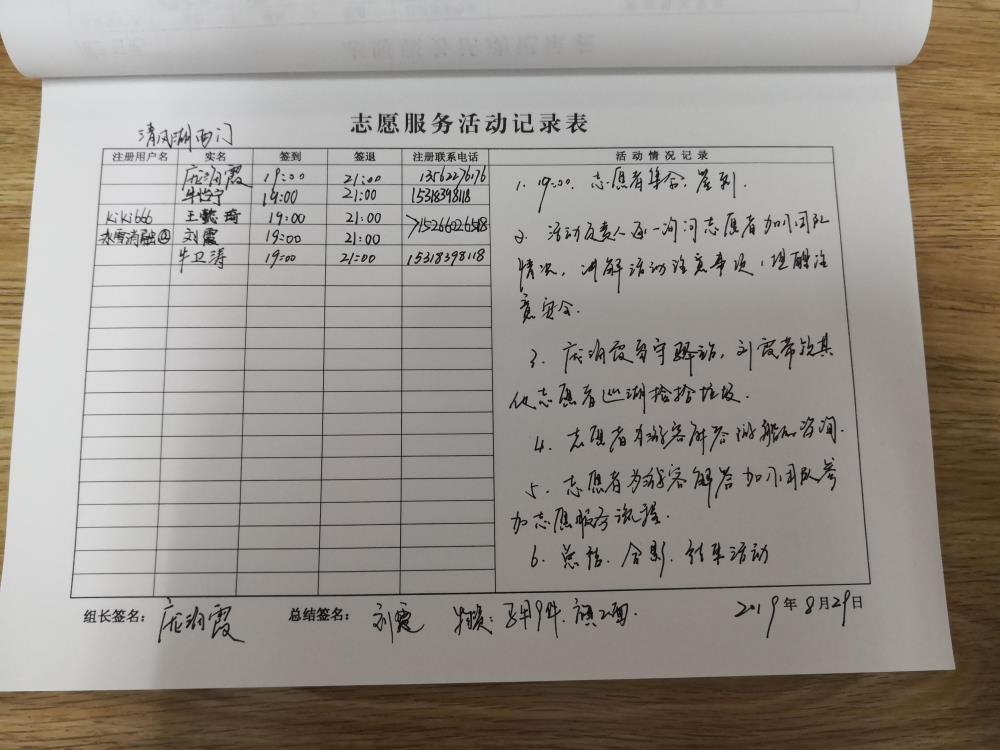 志愿服务活动记录表
清风湖西门
注册用户名 实名 签到 签退 注册联系电话 活动情况记录
庞润霞 19:00 21:00 13562276176
牛怡宁 19:00 21:00 15318398118
kiki666 王懿琦 19:00 21:00
15266026518
冰雪消融 刘霞 19:00 21:00
牛卫涛 19:00 21:00 15318398118
1. 19:00. 志愿者集合. 签到.
2. 活动负责人逐一询问志愿者加入团队
情况, 讲解活动注意事项, 提醒注
意安全.
3. 庞润霞留守驿站, 刘霞带领其
他志愿者巡湖捡拾垃圾.
4. 志愿者为游客解答游船咨询.
5. 志愿者为游客解答加入团队参
加志愿服务流程.
6. 总结. 合影. 结束活动
组长签名: 庞润霞 总结签名: 刘霞 物资: 马甲9件. 旗2面. 2019年8月29日